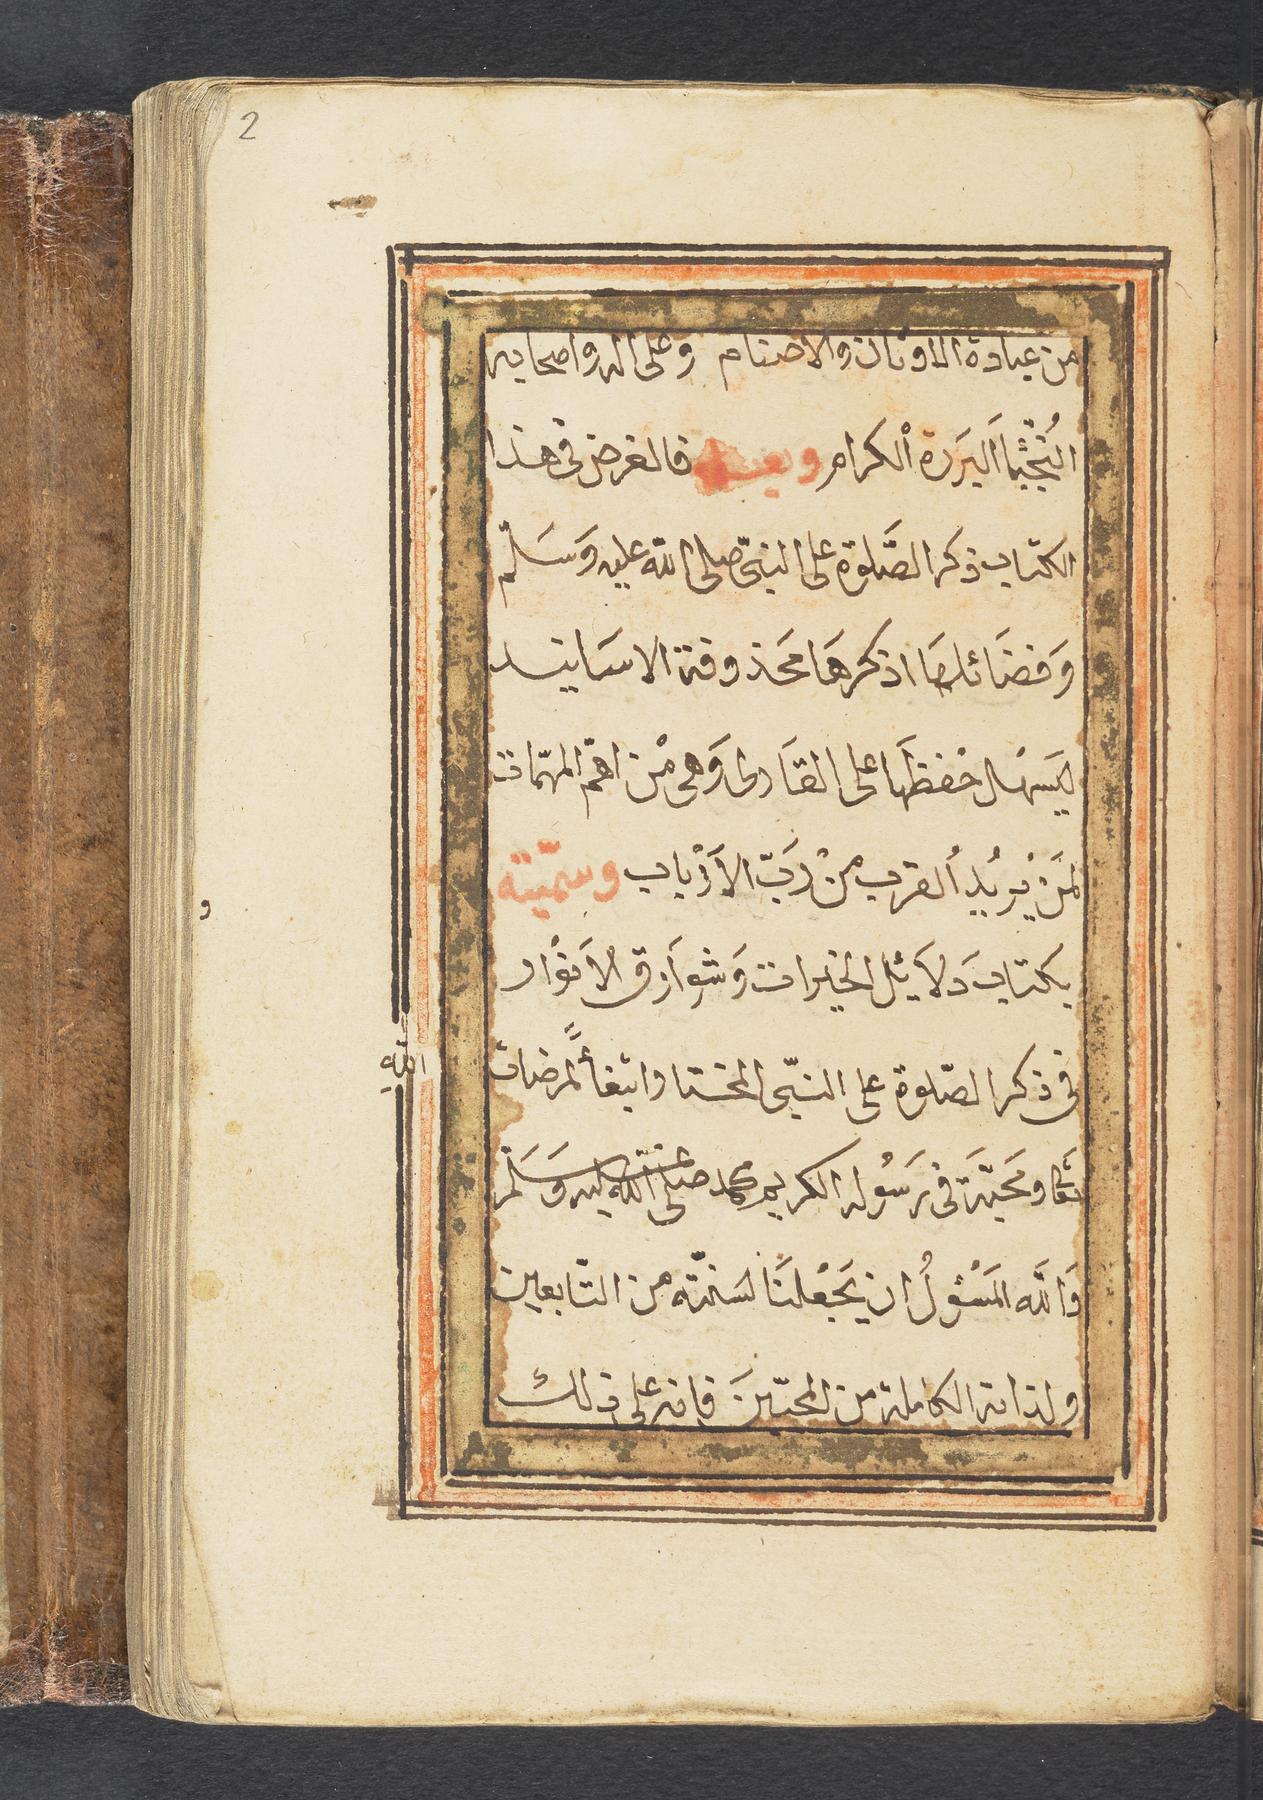 2
من عبادة الاوثان والاصنام وعلى اله واصحابه
النُّجَبَاَ اَلبَرَرة اْلكرام وبعد فالغرض فى هذا
الكتاب ذكر الصَّلوة على النبىّ صلى الله عليه وَسَلّم
وَفضَائلهَا اذكرهَا محَذوفة الاسَانيد
ليَسهُل حْفظَها على القَارى وَهى مْن اهمّ المهّمات
لمَن يُريْدُ اُلقرب من رَبّ الاَرْباب وسمّيته
بكتابَ دَلاَئل الخيرات وَشوَارق الاَنوْار
فى ذكر الصّلوة على النبّى المختار ابتغاًء لمرضات
الله
تعَالى ومحَبّةَ فى رَسُوله الكريم محمد صلى الله عليه وَسَلّم
وَالله المَسْؤلُ ان يَجَعْلنَا لسَنتّه من التّابعين
ولذاته الكاملة من المحبّينَ فانه على ذلك